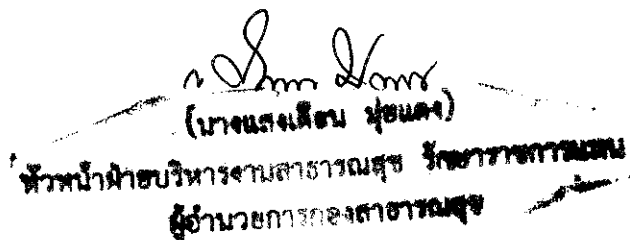 (นางแสงเดือน ปุยแดง)
หัวหน้าฝ่ายบริหารงานสาธารณสุข รักษาราชการแทน
ผู้อำนวยการกองสาธารณสุข